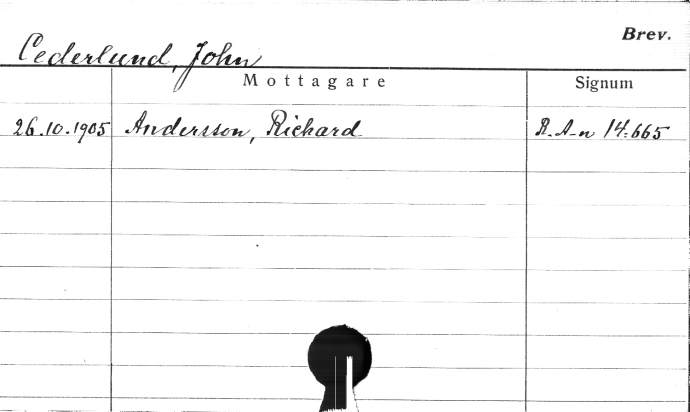 Brev.
Cederlund, John
Mottagare Signum
26.10.1905 Andersson, Richard R. A-n 14:665